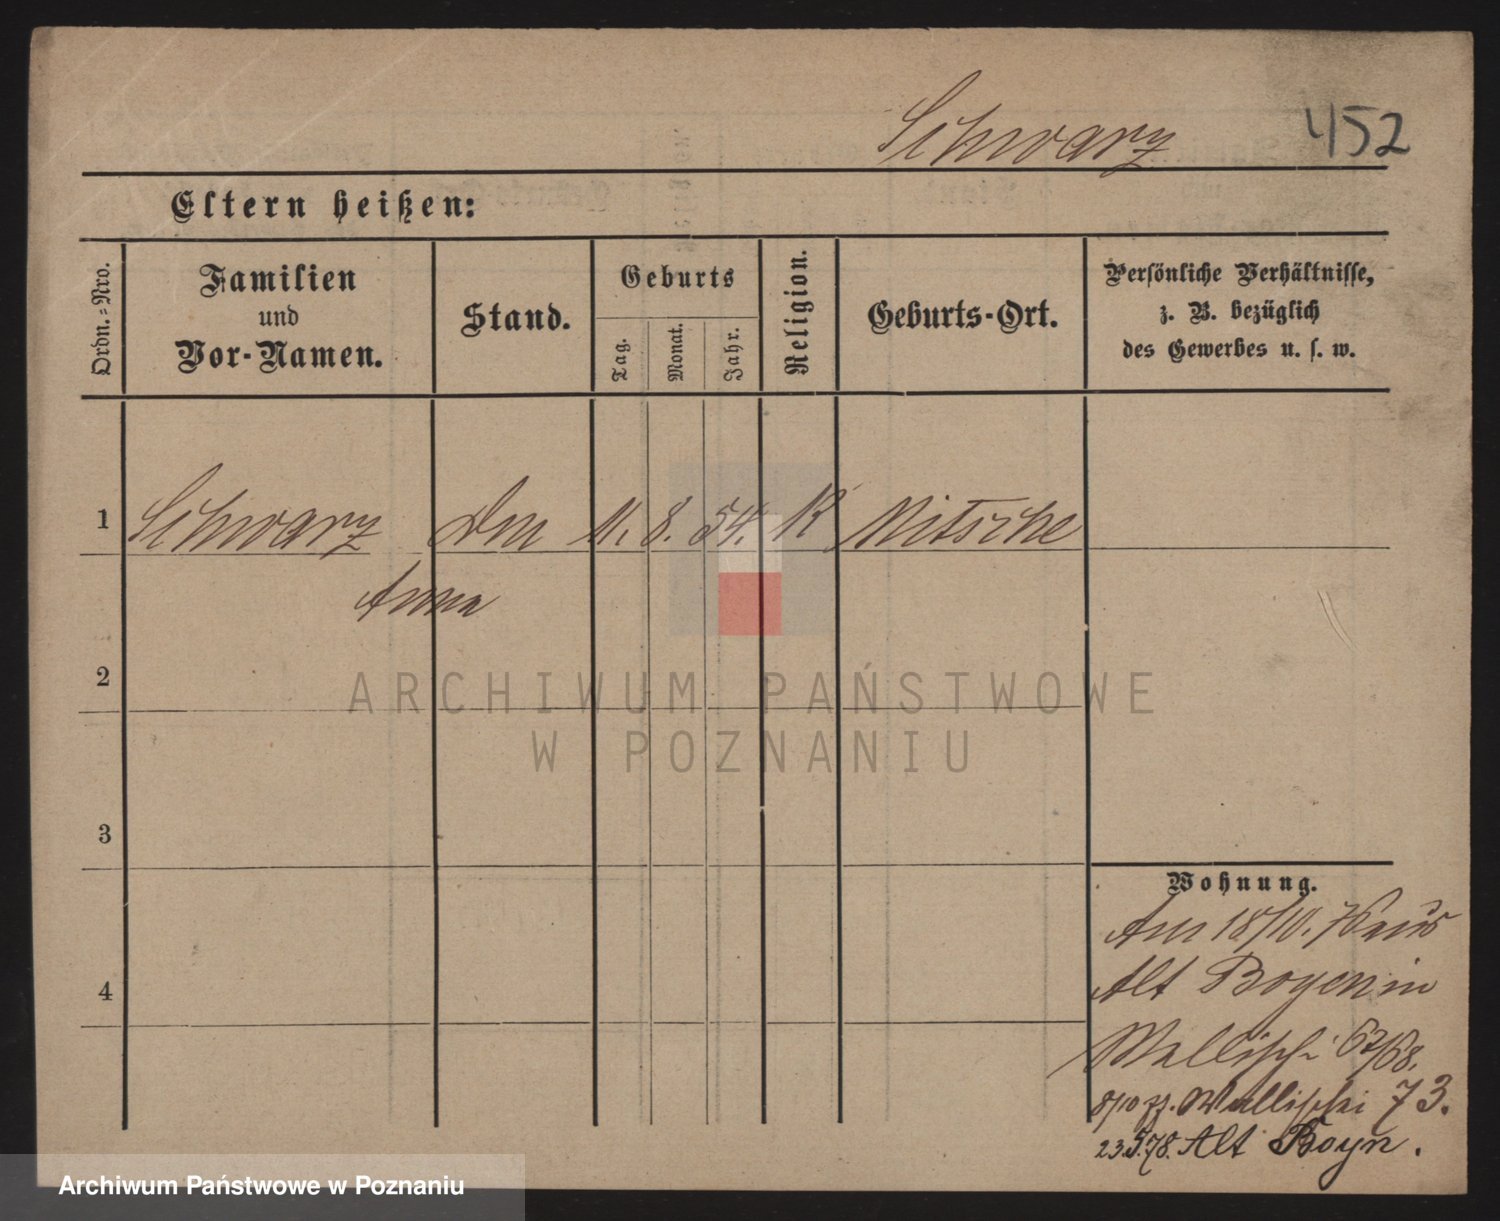 Schwarz
452
Eltern heißen:
Ordn.-Nro.
Familien
und
Vor-Namen.
Stand.
Geburts
Tag.
Monat.
Jahr.
Religion.
Geburts-Ort.
Persönliche Verhältnisse,
z. B. bezüglich
des Gewerbes u. s. w.
1 Schwarz 11. 8. 54. K Nitsche
Anna
2
ARCHIWUM PAŃSTWOWE
W POZNANIU
3
4
Wohnung.
Am 18/10. 76 aus
Alt Boyen in
Wallischi 67/68.
8/10 77. Wallischei 73.
23.5.78. Alt Boyn.
Archiwum Państwowe w Poznaniu